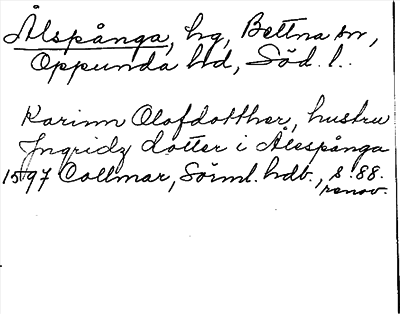 Ålspånga, hg, Bettna sn,
Oppunda hd, Söd. l.
Karinn Olofdotther, hustru
Jngridz dotter i Ålespånga
1597 Collmar, Sörml. hdb., s. 88.
renov.